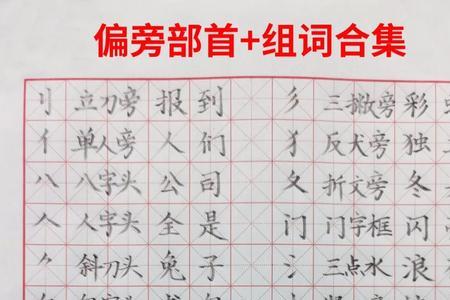 偏旁部首+组词合集
刂 立刀旁 报到 彡 三撇旁 彩
亻 单人旁 人们 犭 反犬旁 独
八 八字头 公司 夂 折文旁 冬
人 人字头 全是 门 门字框 闪
⺈ 斜刀头 兔子 氵 三点水 浪